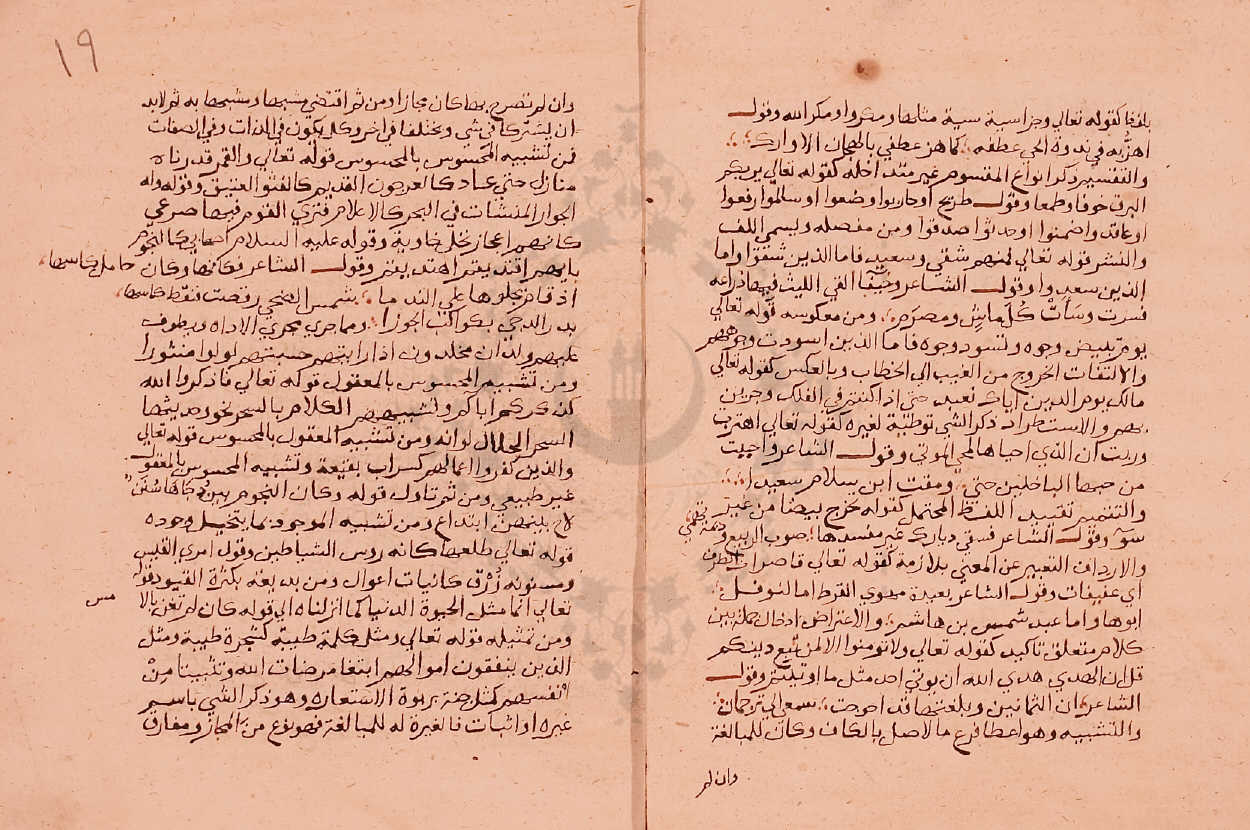 بلفظا كقوله تعالي وجزا سية سية مثلها ومكروا ومكر الله وقول
اهز به في ندوة الحي عطفه كما هز عطفي بالهجان الاوارك
والتفسير ذكر انواع المقسوم غير متداخله كقوله تعالي يريكم
البرق خوفا وطمعا وقول طريح او حاربوا وضعوا او سالموا رفعوا
او عاقدوا ضمنوا او حدثوا صدقوا ومن مفصله ويسمي اللف
والنشر قوله تعالي فمنهم شقي وسعيد فاما الذين شقوا واما
الذين سعدوا وقول الشاعر الفي الليث فيها ذراعه
فسرت وسأت كل ماش ومصرم ومن معكوسه قوله تعالي
يوم تبيض وجوه وتسود وجوه فاما الذين اسودت وجوههم
والالتفات الخروج من الغيب الي الخطاب وبالعكس كقوله تعالي
مالك يوم الدين اياك نعبد حتي اذا كنتم في الفلك وجرين
بهم والاستطراد ذكر الشي توطئة لغيره كقوله تعالي اهتزت
وربت ان الذي احياها لمحي الموتي وقول الشاعر واحببت
من حبها الباخلين حتي ومقت ابن سلام سعيدا
والتتميم تقييد اللفظ المحتمل كقوله تخرج بيضا من غير
سو وقول الشاعر فسقي ديارك غير مفسدها صوب الربيع وديمة تهمي
والارداف التعبير عن المعني بلازمة كقوله تعالي قاصرات الطرف
اي عفيفات وقول الشاعر بعيدة مهوي القرط اما لنوفل
ابوها واما عبد شمس بن هاشم والاعتراض ادخال جملة بين
كلام متعلق تاكيد كقوله تعالي ولا تومنوا الا لمن تبع دينكم
قل ان الهدي هدي الله ان يوتي احد مثل ما اوتيتم وقول
الشاعر ان الثمانين وبلغتها قد احوجت سمعي الي ترجمان
والتشبيه وهو اعطا فرع ما للاصل بالكاف وكان للمبالغة
وان لم
١٩
وان لم تصرح بها كان مجازا ومن ثم اقتضي مشبها ومشبها به ثم لابد
ان يشتركا في شي ويختلفا في اخر وكل يكون في الذات وفي الصفات
فمن تشبيه المحسوس بالمحسوس قوله تعالي والقمر قدرناه
منازل حتي عاد كالعرجون القديم كالقنو العتيق وقوله وله
الجوار المنشات في البحر كالاعلام فتري القوم فيها صرعي
كانهم اعجاز نخل خاوية وقوله عليه السلام اصحابي كالنجوم
بايهم اقتديتم اهتديتم وقول الشاعر فكانها وكان حامل كاسها
اذ قام يجلوها علي الندما شمس الضحي رقصت فنقط كاسها
بدر الدجي بكواكب الجوزا ومما جري مجري الاداه ويطوف
عليهم ولدان مخلدون اذا رايتهم حسبتهم لولوا منثورا
ومن تشبيه المحسوس بالمعقول قوله تعالي فاذكروا الله
كذكركم اباكم وتشبيههم الكلام بالسحر نحو وحديثها
السحر الحلال لو انه ومن تشبيه المعقول بالمحسوس قوله تعالي
والذين كفروا اعمالهم كسراب بقيعة وتشبيه المحسوس بالمعقول
غير طبيعي ومن ثم تاول قوله وكان النجوم بين دجاها سنن
لاح بينهن ابتداع ومن تشبيه الموجود بما يتخيل وجوده
قوله تعالي طلعها كانه روس الشياطين وقول امري القيس
ومسنونة زرق كانياب اغوال ومن بديعه بكثرة القيود قوله
تعالي انما مثل الحيوة الدنيا كما انزلناه الي قوله كان لم تغن بالامس
ومن تمثيله قوله تعالي ومثل كلمة طيبة كشجرة طيبة ومثل
الذين ينفقون اموالهم ابتغا مرضات الله وتثبيتا من
انفسهم كمثل جنة بربوة الاستعاره وهو ذكر الشي باسم
غيره او اثبات ما لغيره له للمبالغة فهو نوع من المجاز ومفارق